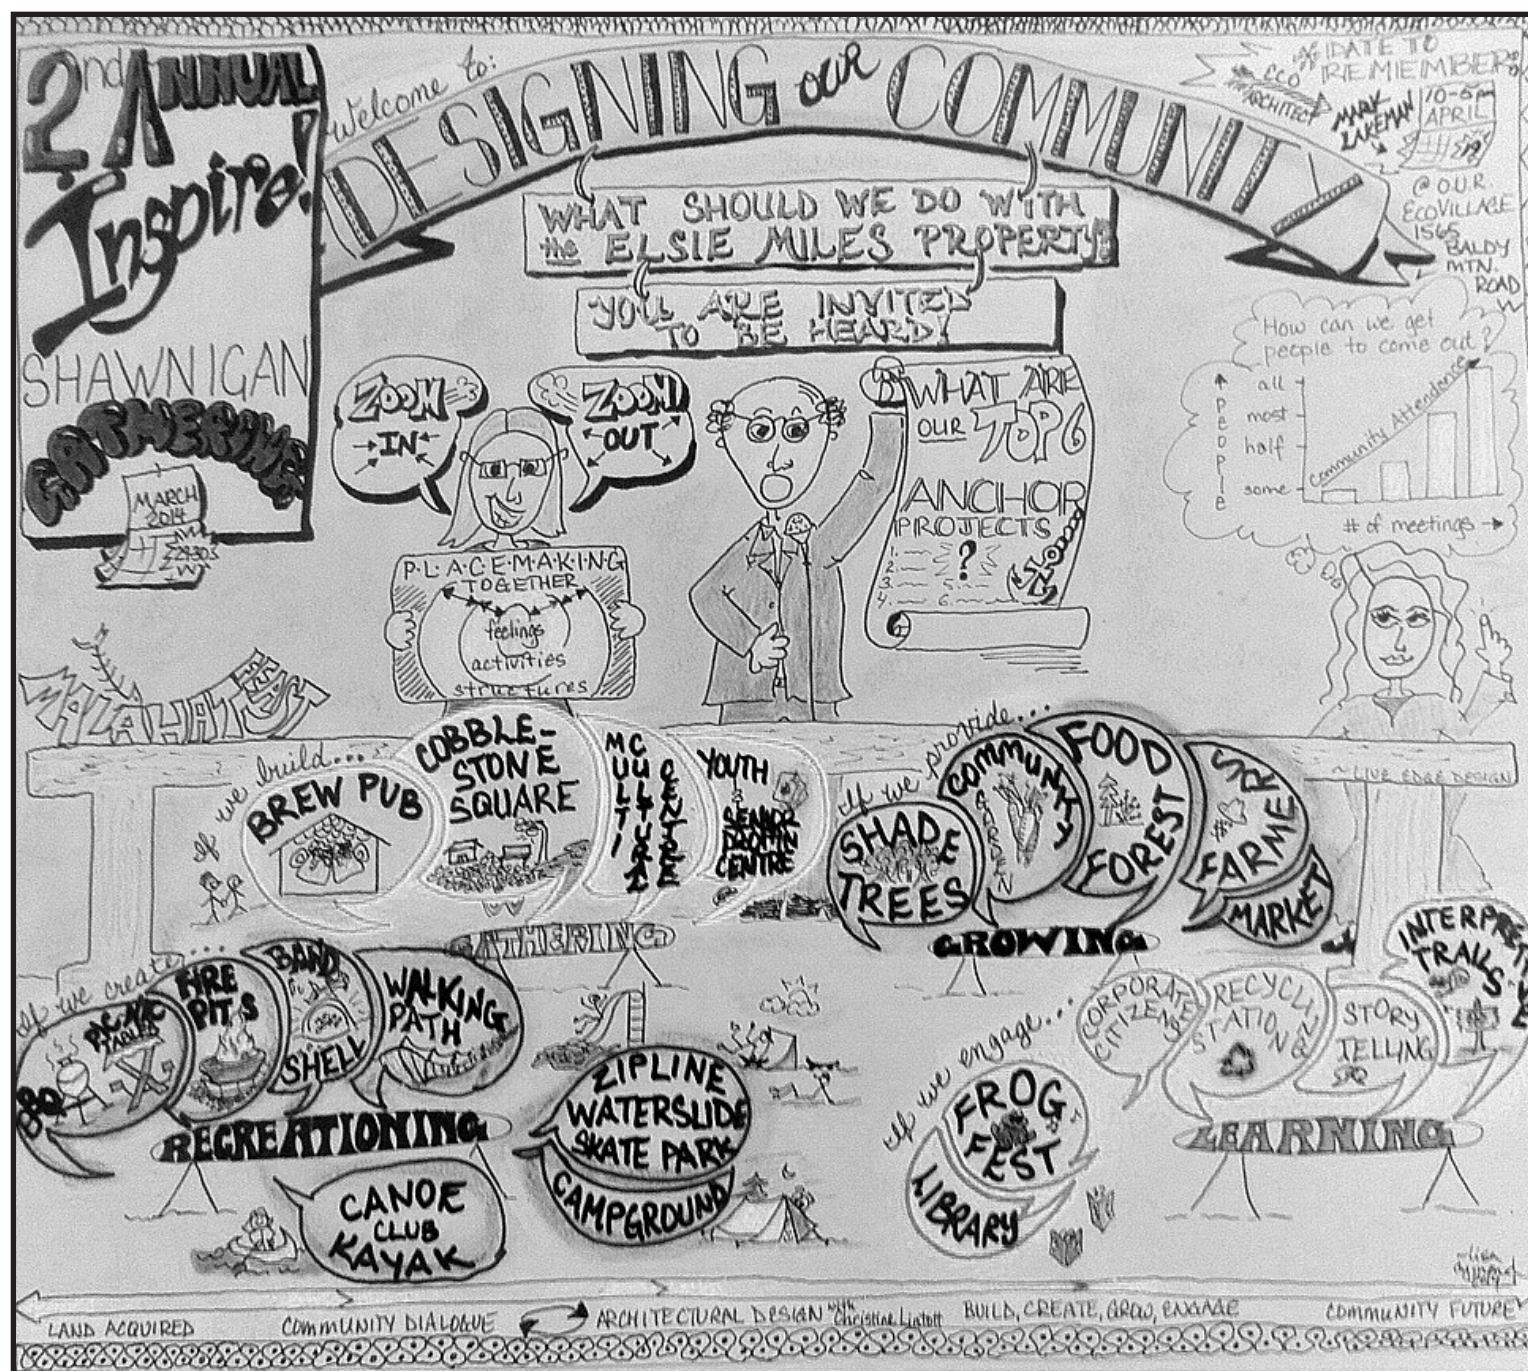 2nd ANNUAL
Inspire!
SHAWNIGAN
GATHERING
MARCH
2014
Welcome to:
DESIGNING our COMMUNITY
WHAT SHOULD WE DO WITH
the ELSIE MILES PROPERTY?
YOU ARE INVITED
TO BE HEARD!
DATE TO
REMEMBER
ECO
ARCHITECT
MARK
LAKEMAN
APRIL
@ O.U.R.
ECOVILLAGE
1565
BALDY
MTN.
ROAD
How can we get
people to come out?
all
most
half
some
People
Community Attendance
# of meetings
ZOOM
IN
ZOOM
OUT
P·L·A·C·E·M·A·K·I·N·G
TOGETHER
feelings
activities
structures
WHAT ARE
OUR TOP 6
ANCHOR
PROJECTS
1.
2.
3.
4.
5.
6.
?
MALAHAT
~LIVE EDGE DESIGN
If we build...
BREW PUB
COBBLE-
STONE
SQUARE
MULTI
CULTURAL
CENTRE
YOUTH
&
SENIOR
DROP IN
CENTRE
GATHERING
If we provide...
SHADE
TREES
COMMUNITY
GARDEN
FOOD
FOREST
FARMERS
MARKET
GROWING
If we create...
BBQ
PIC-NIC
TABLES
FIRE
PITS
BAND
SHELL
WALKING
PATH
RECREATIONING
CANOE
CLUB
KAYAK
ZIPLINE
WATERSLIDE
SKATE PARK
CAMPGROUND
If we engage...
CORPORATE
CITIZENS
RECYCLING
STATION
STORY
TELLING
INTERPRETIVE
TRAILS
FROG
FEST
LIBRARY
LEARNING
LAND ACQUIRED
COMMUNITY DIALOGUE
ARCHITECTURAL DESIGN with Christine Lintott
BUILD, CREATE, GROW, ENGAGE
COMMUNITY FUTURE